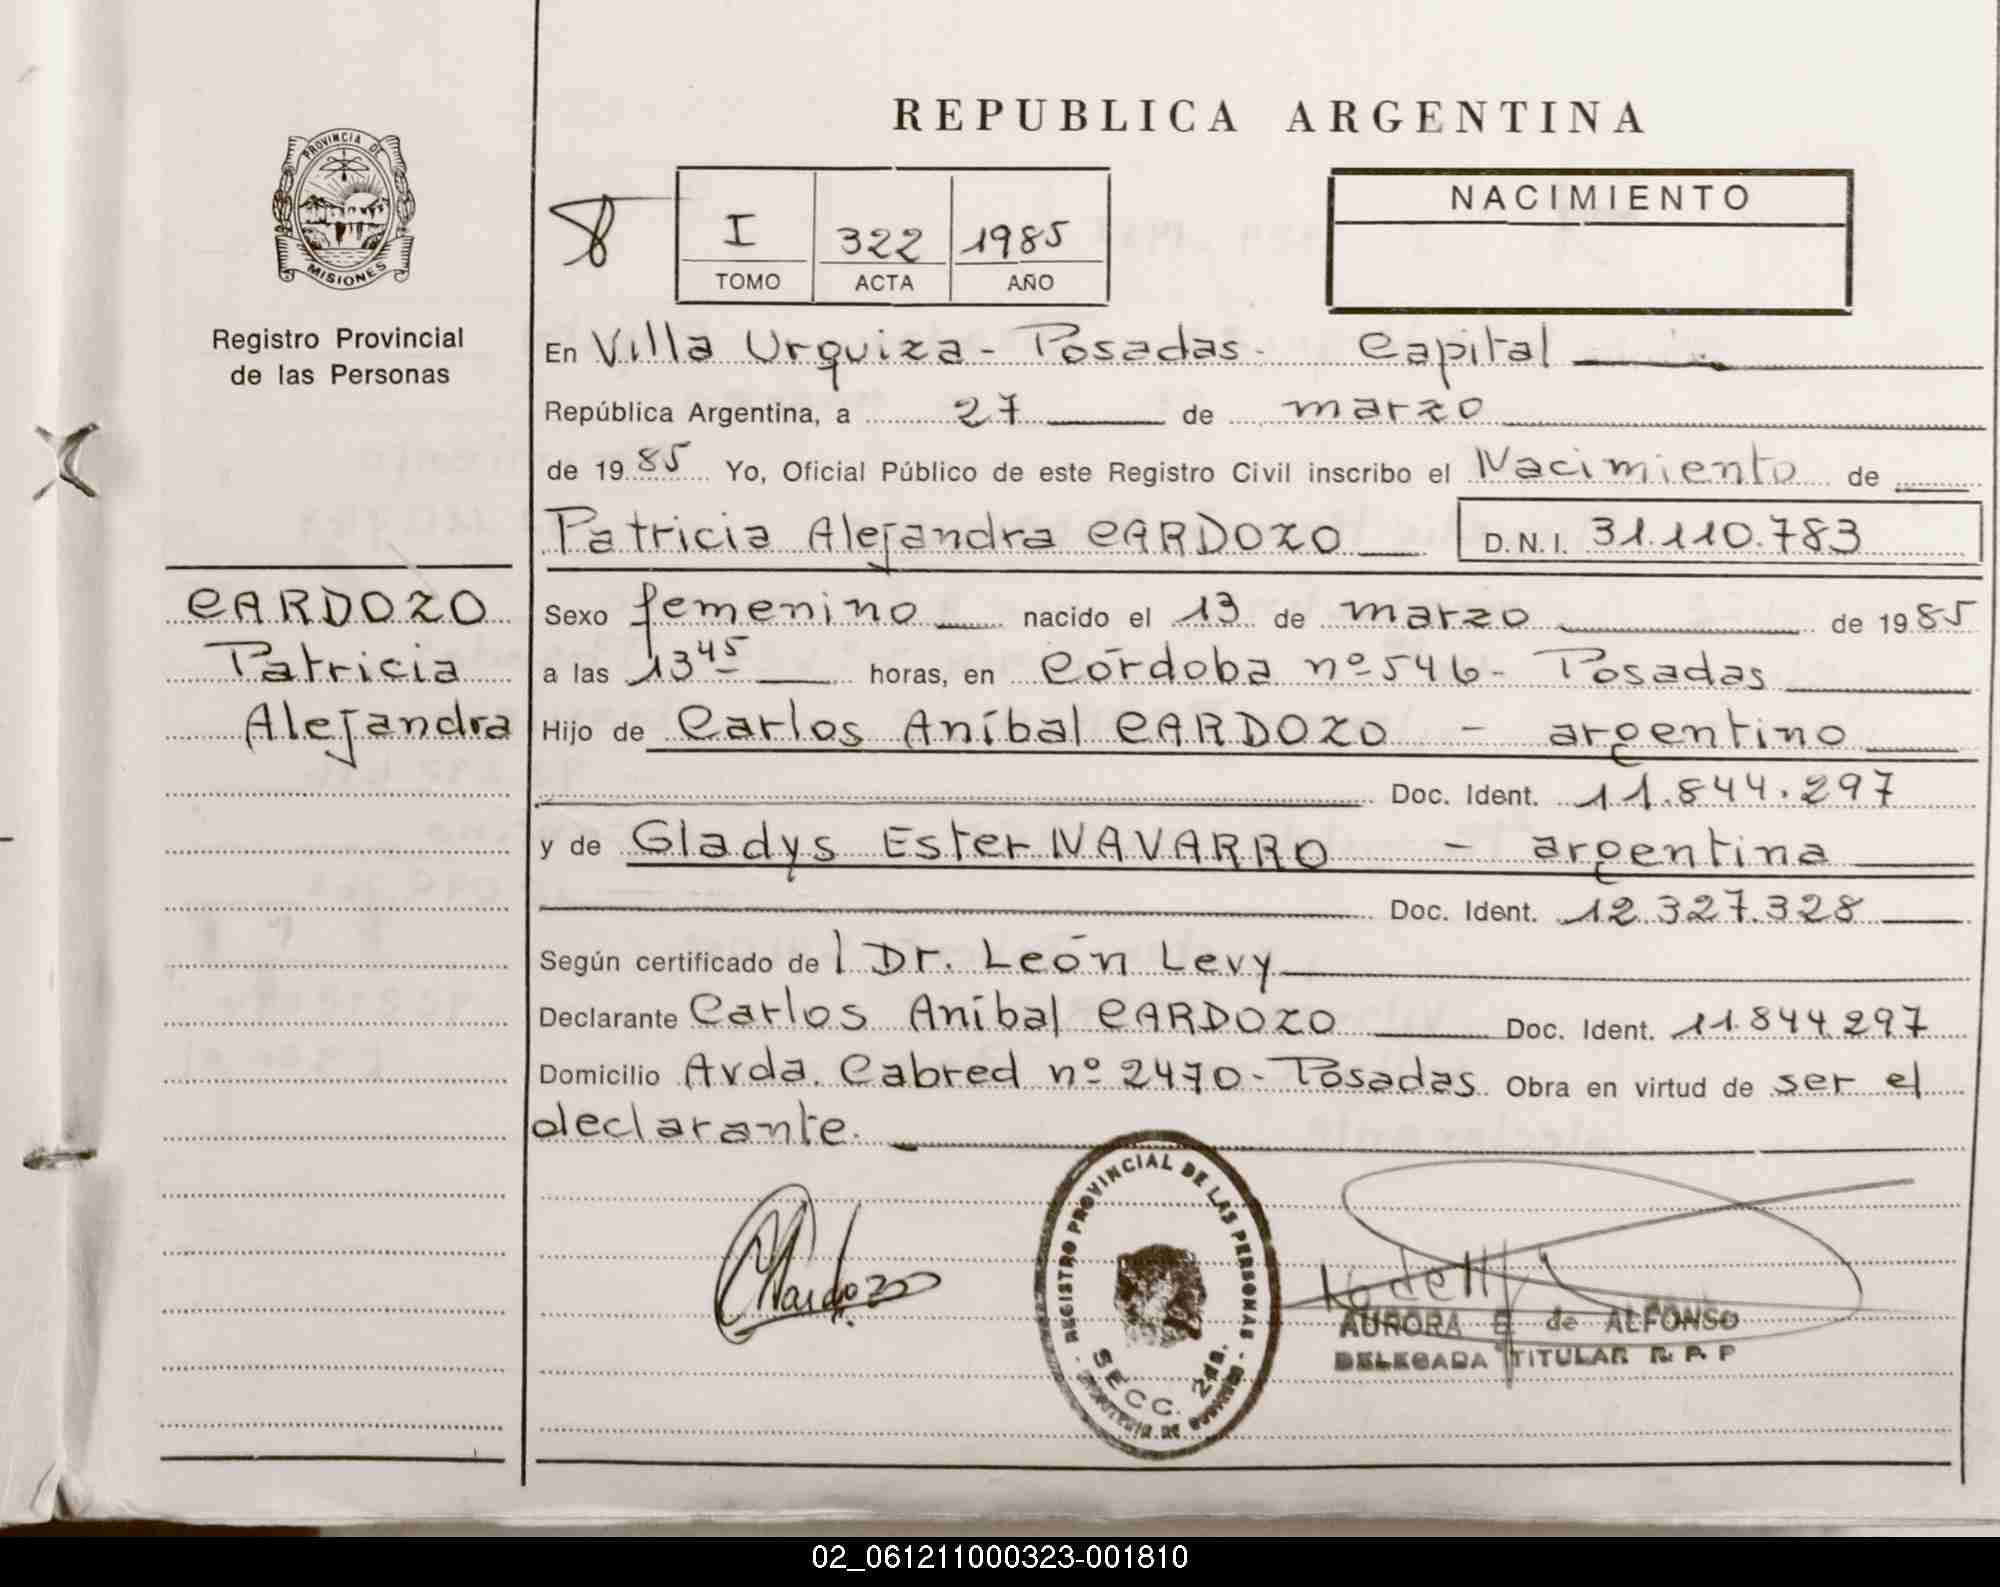 REPUBLICA ARGENTINA
PROVINCIA DE
MISIONES
Registro Provincial
de las Personas
8
I 322 1985
TOMO ACTA AÑO
NACIMIENTO
En Villa Urquiza - Posadas - Capital
República Argentina, a 27 de marzo
de 19 85 Yo, Oficial Público de este Registro Civil inscribo el Nacimiento de
Patricia Alejandra CARDOZO D.N.I. 31.110.783
CARDOZO
Patricia
Alejandra
Sexo femenino nacido el 13 de marzo de 19 85
a las 13 45 horas, en Córdoba nº 546 - Posadas
Hijo de Carlos Aníbal CARDOZO - argentino
Doc. Ident. 11.844.297
y de Gladys Ester NAVARRO - argentina
Doc. Ident. 12.327.328
Según certificado de l Dr. León Levy
Declarante Carlos Aníbal CARDOZO Doc. Ident. 11.844.297
Domicilio Avda. Cabred nº 2470 - Posadas Obra en virtud de ser el
declarante.
Cardozo
REGISTRO PROVINCIAL DE LAS PERSONAS
SECC. 2da.
AURORA E. de ALFONSO
DELEGADA TITULAR R. P. P
02_061211000323-001810